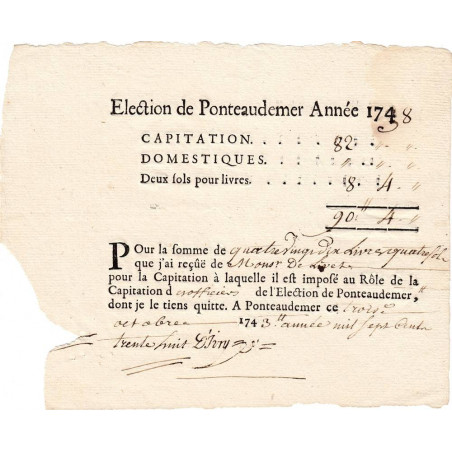 Election de Ponteaudemer Année 1738
CAPITATION. . . . . 82 " "
DOMESTIQUES. . . . . " " "
Deux sols pour livres. . . . 8 " 4 "
90 " 4 "
Pour la somme de quatre vingt dix Livres quatre sols
que j'ai reçûë de Mons.r De Livet
pour la Capitation à laquelle il est imposé au Rôle de la
Capitation d'exofficiers de l'Election de Ponteaudemer,
dont je le tiens quitte. A Ponteaudemer ce trois.e
octobre 1743 année mil sept cents
trente huit D'Ivry